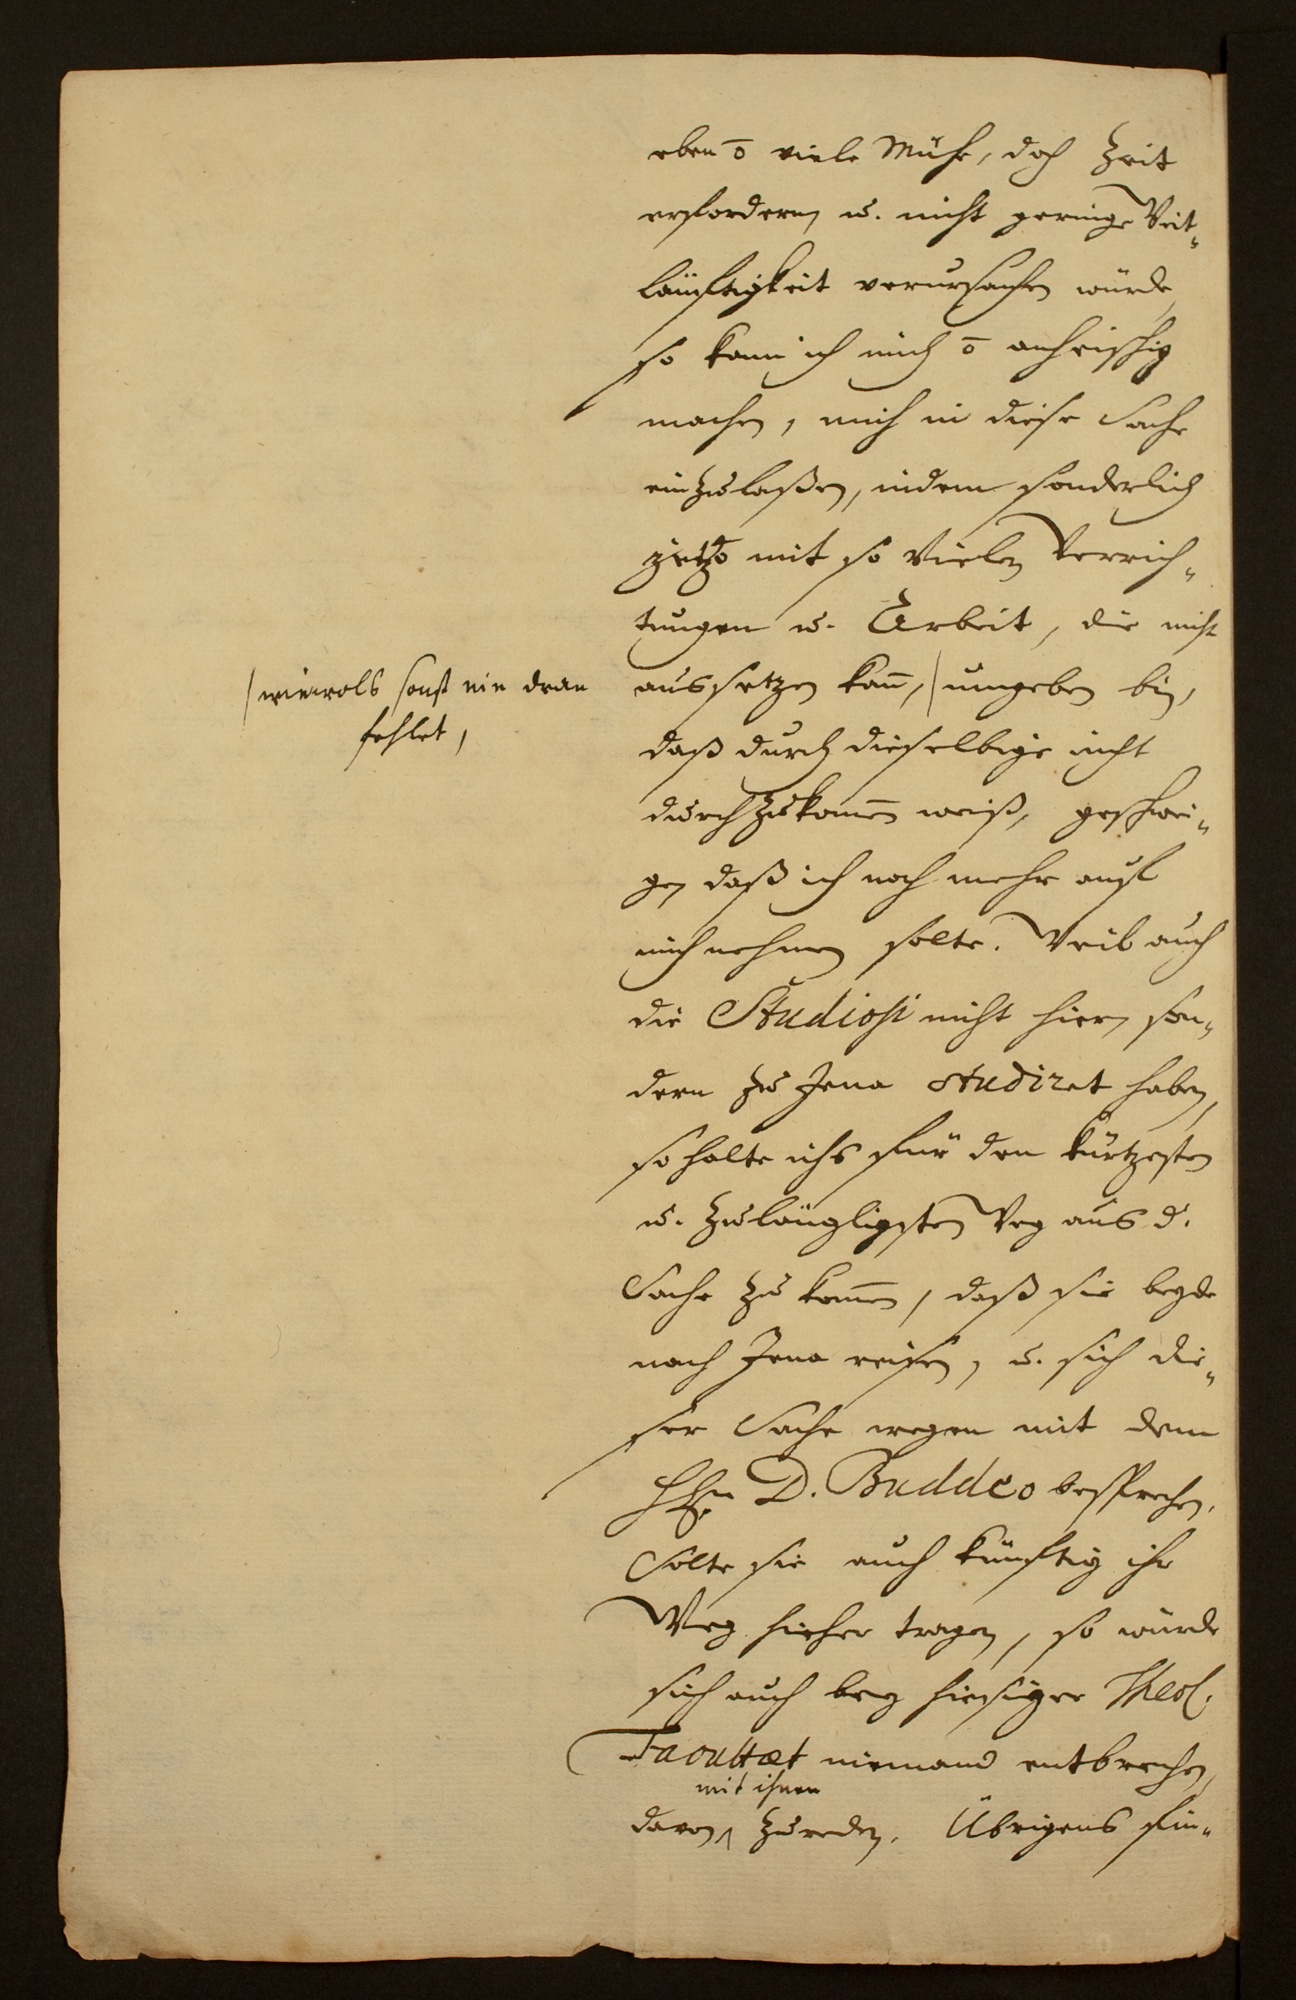 eben ō viele Mühe, doch Zeit
erfordern, u. nicht geringe Weit„
läufftigkeit verursachen würde,
so kan ich mich ō anheischig
machen, mich in diese Sache
einzulaßen, indem sonderlich
jetzo mit so vielen Verrich„
tungen u. Arbeit, die nicht
aussetzen kan̄, / umgeben bin,
/ wiewols sonst nie dran
fehlet,
daß durch dieselbige nicht
durchzukom̄en weiß, geschwei„
ge, daß ich noch mehr auf
mich nehmen solte. Weil auch
die Studiosi nicht hier, son„
dern zu Jena studiret haben,
so halte ichs für den kürtzesten
u. zulängligsten Weg aus d.
Sache zu kom̄en, daß sie beyde
nach Jena reisen, u. sich die„
ser Sache wegen mit dem
HEn D. Buddeo besprechen.
Solte sie auch künftig ihr
Weg hieher tragen, so würde
sich auch bey hiesiger Theol.
Facultæt niemand entbrechen,
mit ihnen
davon zureden. Übrigens fin„